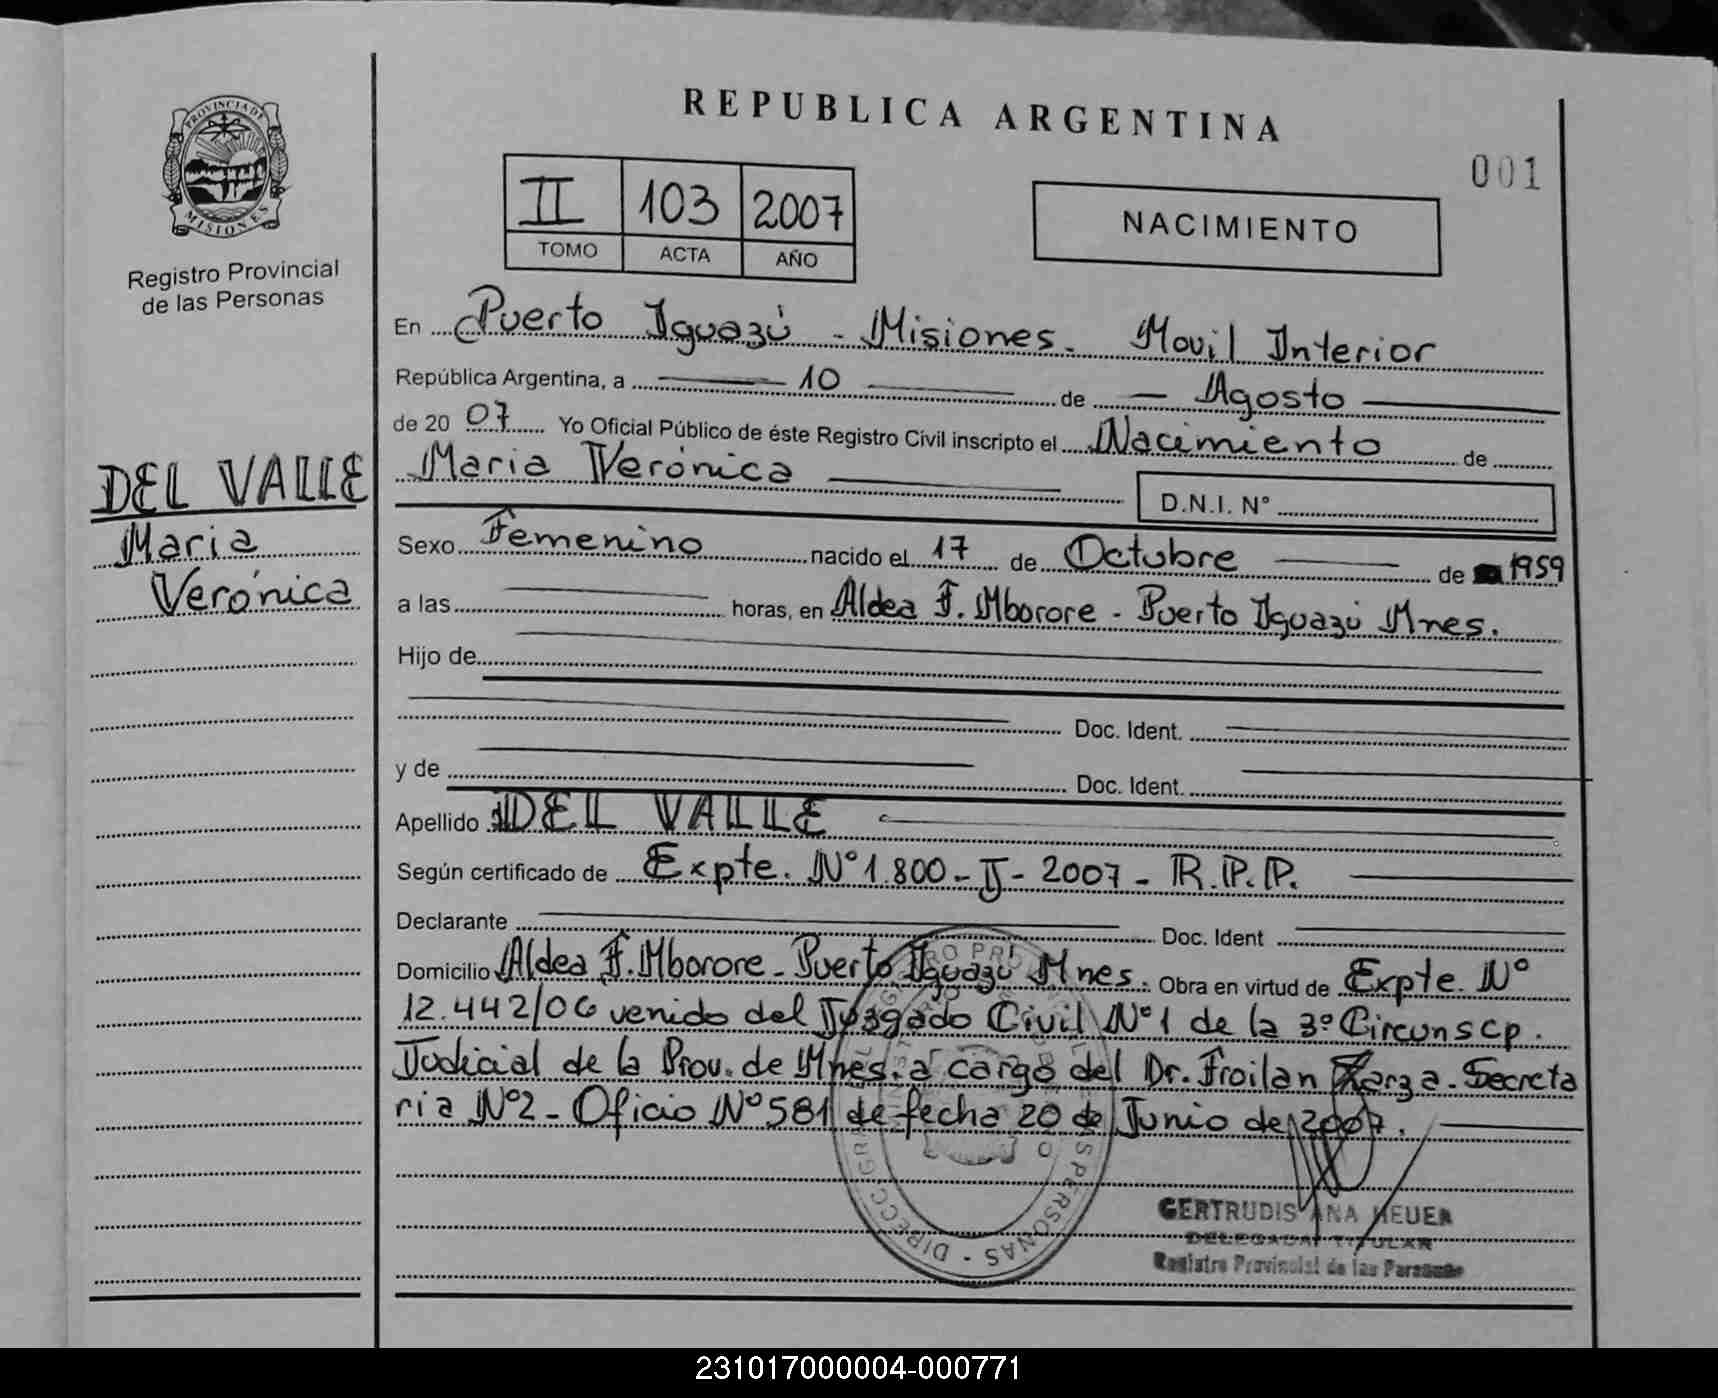 REPUBLICA ARGENTINA
001
PROVINCIA DE MISIONES
Registro Provincial
de las Personas
II 103 2007
TOMO ACTA AÑO
NACIMIENTO
En Puerto Iguazú - Misiones. Movil Interior
República Argentina, a 10 de Agosto
de 2007 Yo Oficial Público de éste Registro Civil inscripto el Nacimiento de
Maria Verónica D.N.I. N°
DEL VALLE
Maria
Verónica
Sexo Femenino nacido el 17 de Octubre de 1959
a las horas, en Aldea F. Mborore - Puerto Iguazú Mnes.
Hijo de
Doc. Ident.
y de Doc. Ident.
Apellido DEL VALLE
Según certificado de Expte. N° 1.800 - J - 2007 - R.P.P.
Declarante Doc. Ident
Domicilio Aldea F. Mborore - Puerto Iguazú Mnes. Obra en virtud de Expte. N°
12.442/06 venido del Juzgado Civil N° 1 de la 3° Circunscp.
Judicial de la Prov. de Mnes. a cargo del Dr. Froilan Zarza - Secreta
ria N°2 - Oficio N° 581 de fecha 20 de Junio de 2007.
GERTRUDIS ANA HEUER
DELEGADA TITULAR
Registro Provincial de las Personas
231017000004-000771